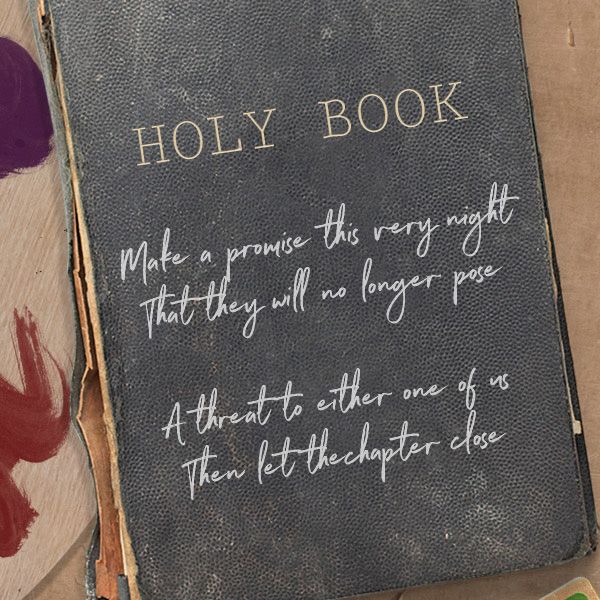 HOLY BOOK
Make a promise this very night
That they will no longer pose
A threat to either one of us
Then let thechapter close